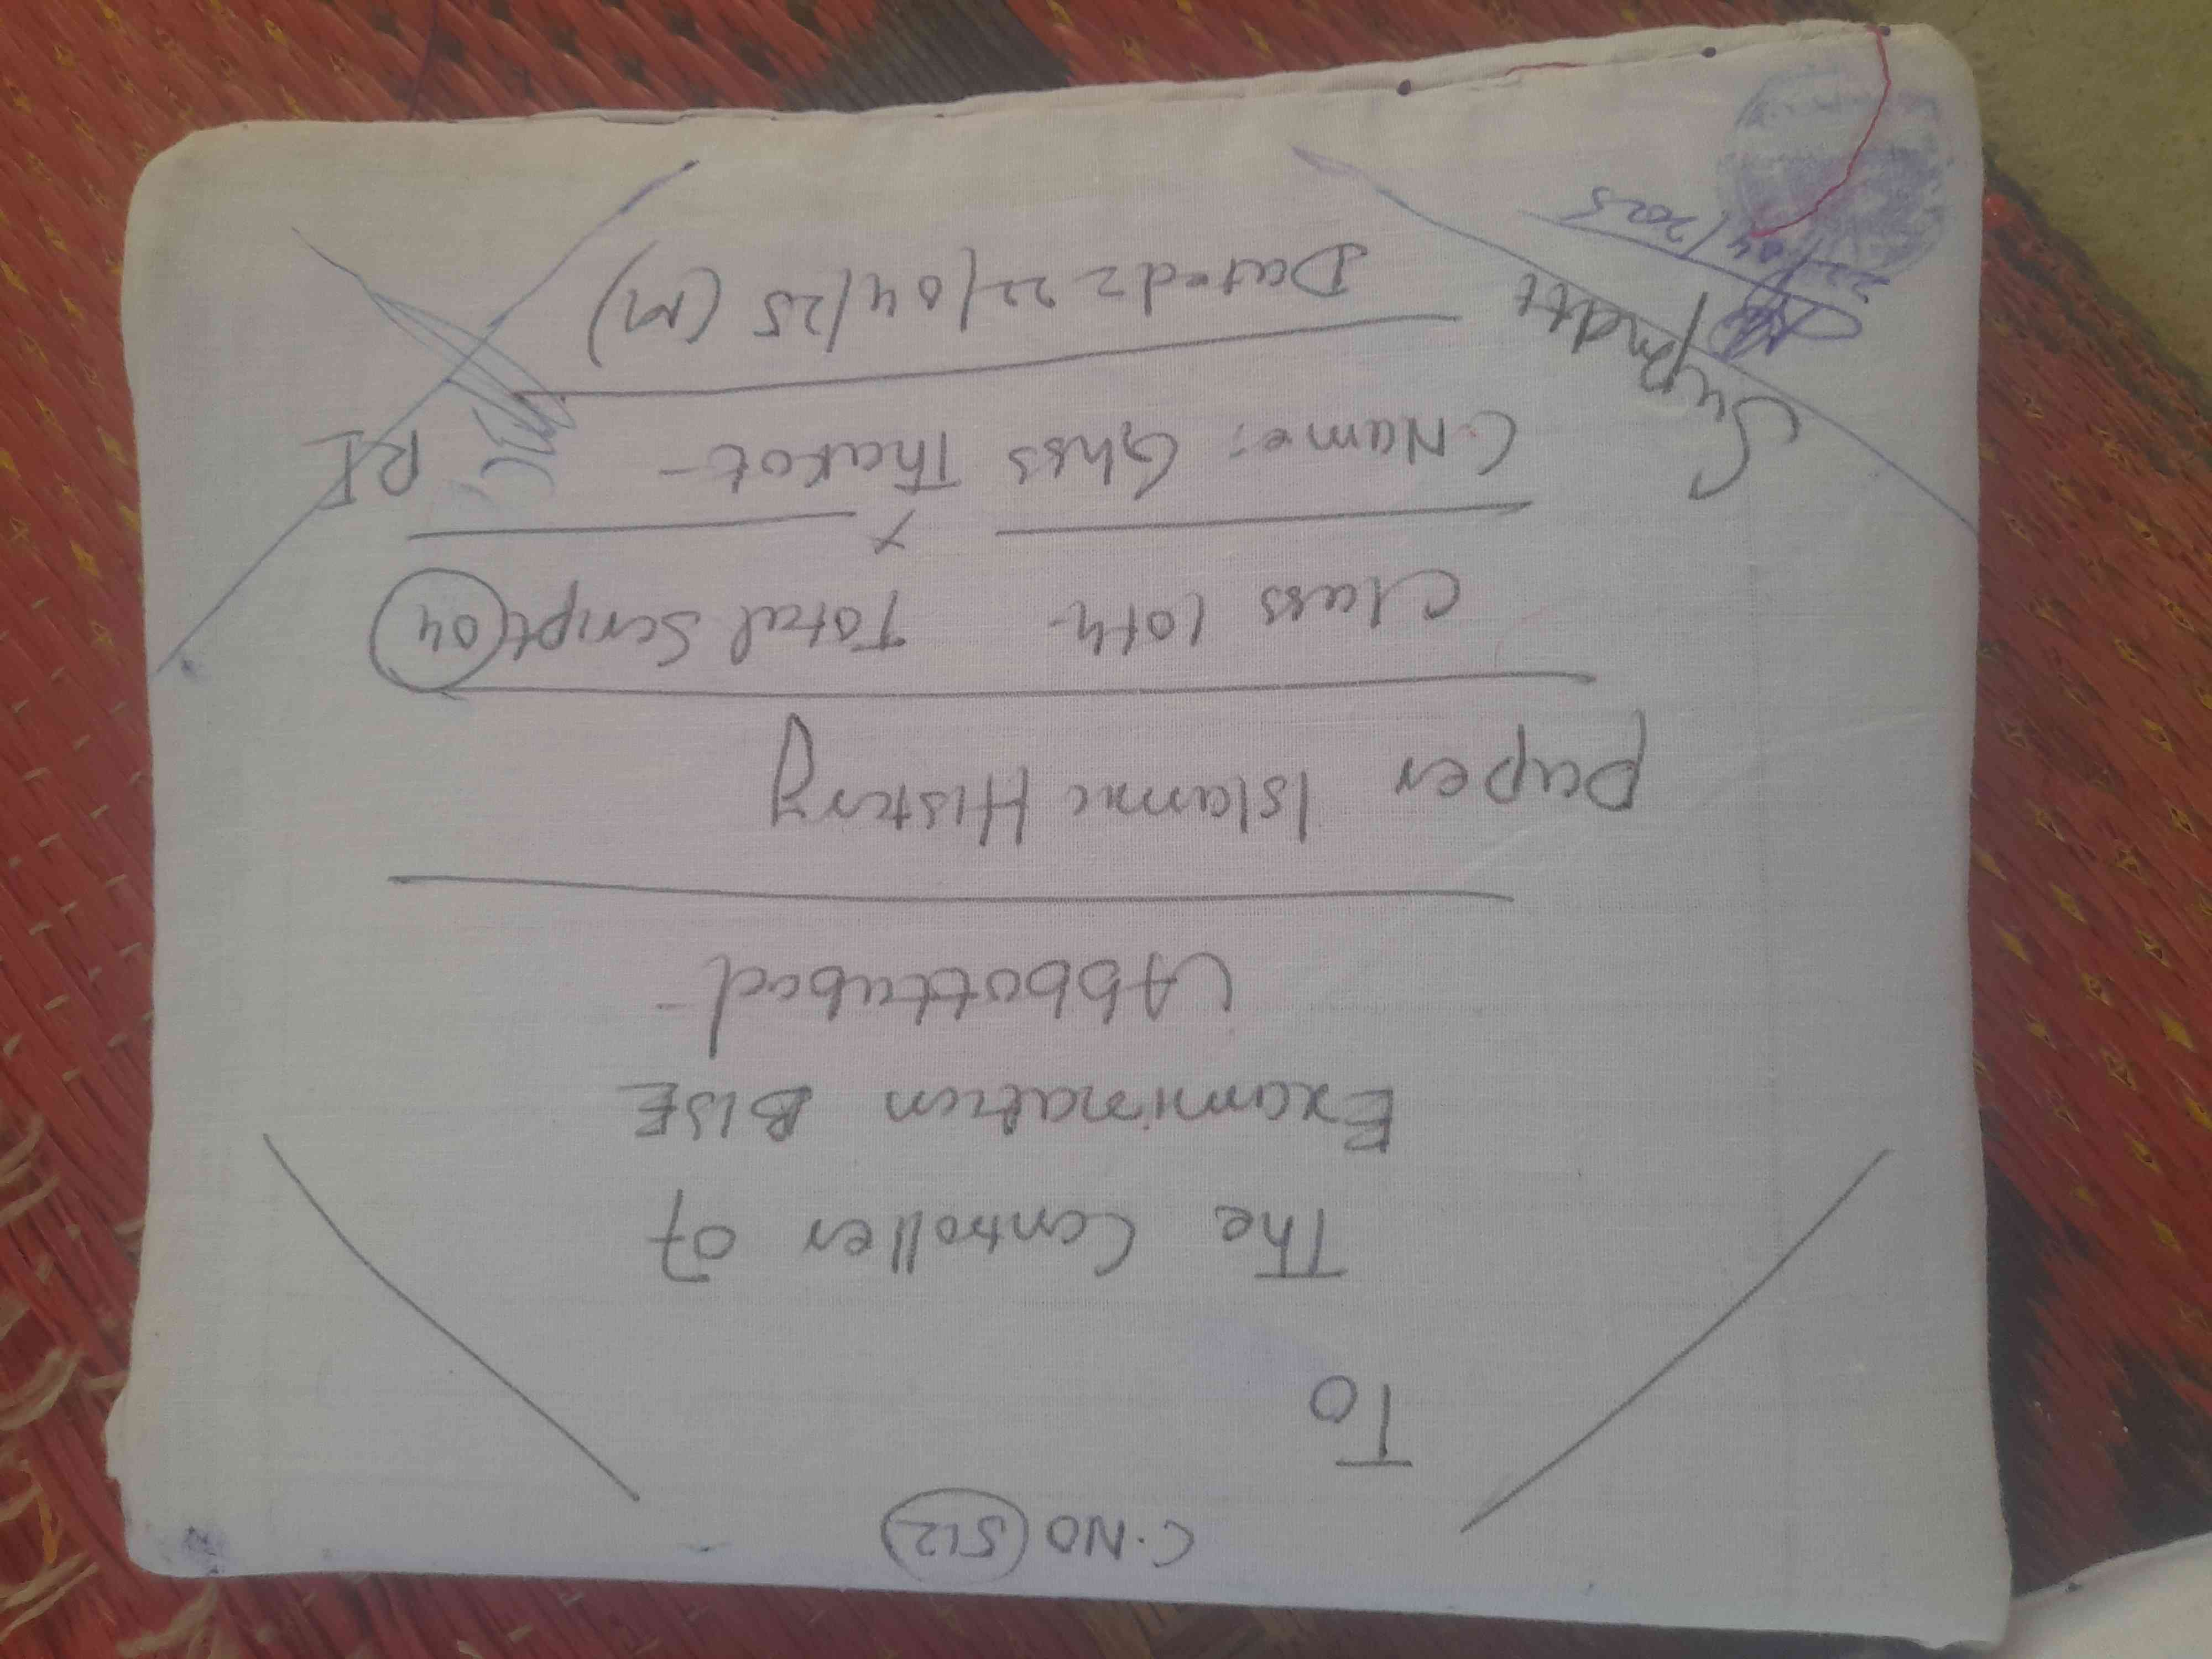 C.NO 512
To
The Controller of
Examination BISE
Abbottabad-
Paper Islamic History
Class 10th Total Script 04
C.Name: Ghss Thakot-
Dated 22/04/25 (M)
Supndtt
22/04/2025
RI